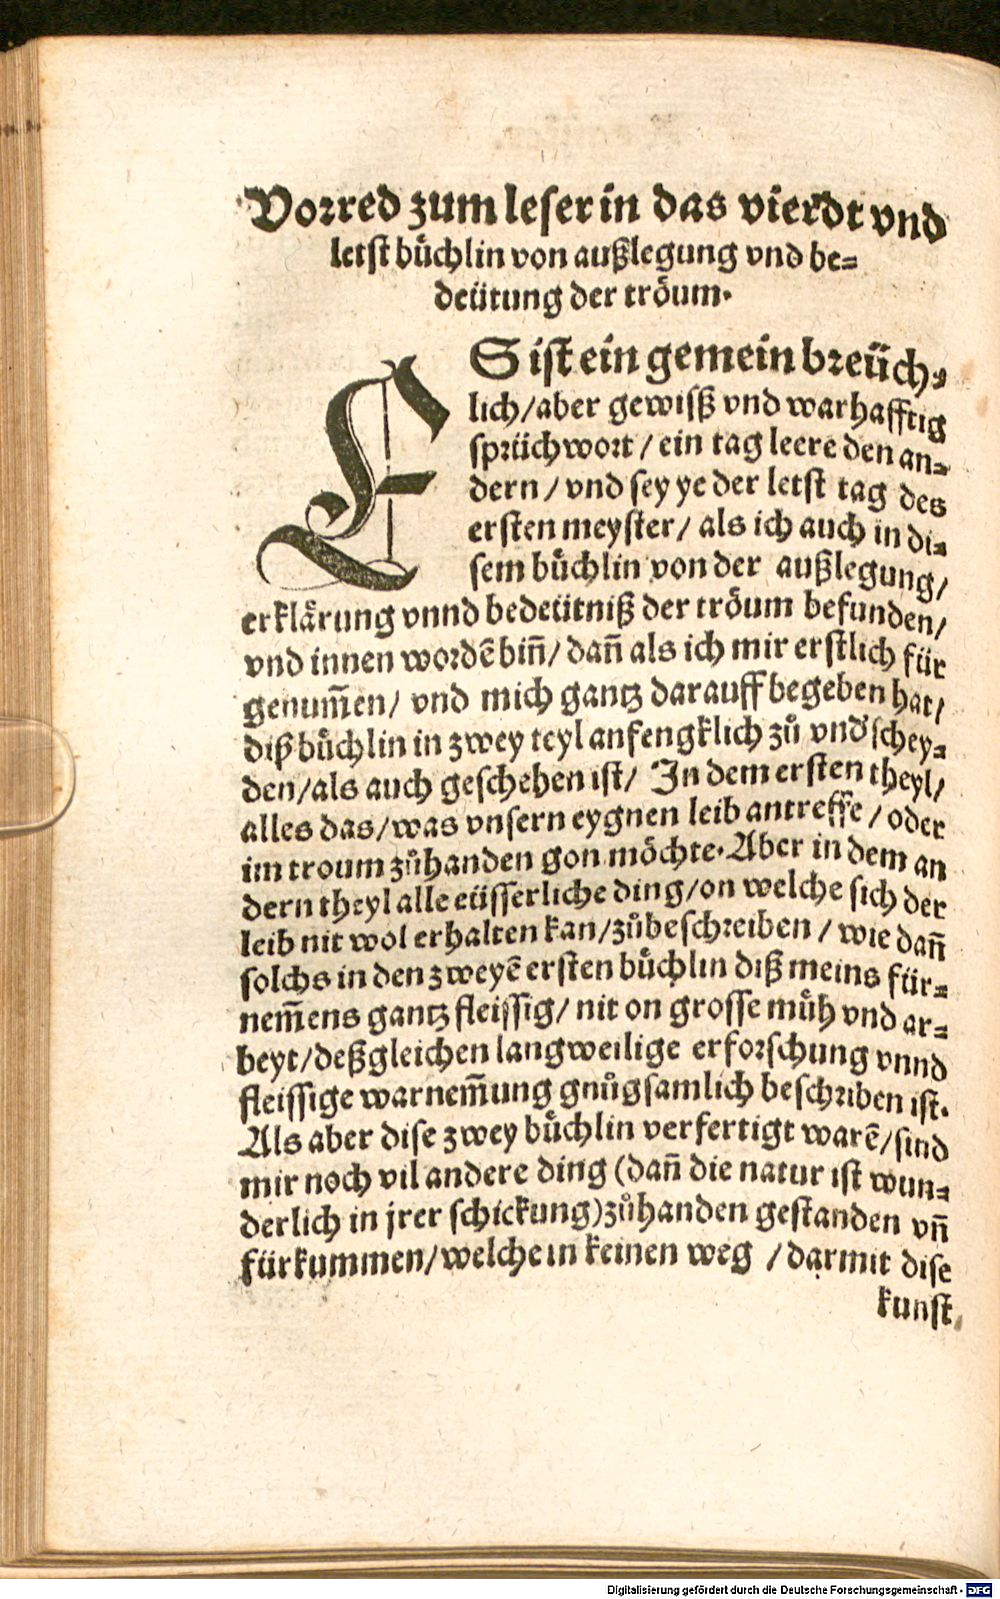 Vorred zum leser in das vierdt vnd
letst bůchlin von außlegung vnd be⸗
deütung der trǒum.
ES ist ein gemein breüch⸗
lich/aber gewisß vnd warhafftig
sprüchwort/ ein tag leere den an⸗
dern/ vnd sey ye der letst tag des
ersten meyster/ als ich auch in di⸗
sem bůchlin von der außlegung/
erklärung vnnd bedeütniß der trǒum befunden/
vnd innen wordē biñ/ dañ als ich mir erstlich für
genum̃en/ vnd mich gantz darauff begeben hat/
diß bůchlin in zwey teyl anfengklich zů vnd'schey⸗
den/als auch geschehen ist/ In dem ersten theyl/
alles das/was vnsern eygnen leib antreffe/oder
im troum zůhanden gon möchte. Aber in dem an
dern theyl alle eüsserliche ding/on welche sich der
leib nit wol erhalten kan/zůbeschreiben/ wie dañ
solchs in den zweyē ersten bůchlin diß meins für⸗
nem̃ens gantz fleissig/ nit on grosse můh vnd ar⸗
beyt/deßgleichen langweilige erforschung vnnd
fleissige warnem̃ung gnůgsamlich beschriben ist.
Als aber dise zwey bůchlin verfertigt warē/sind
mir noch vil andere ding (dañ die natur ist wun⸗
derlich in jrer schickung)zůhanden gestanden vñ
fürkummen/welche in keinen weg /darmit dise
kunst
Digitalisierung gefördert durch die Deutsche Forschungsgemeinschaft - DFG